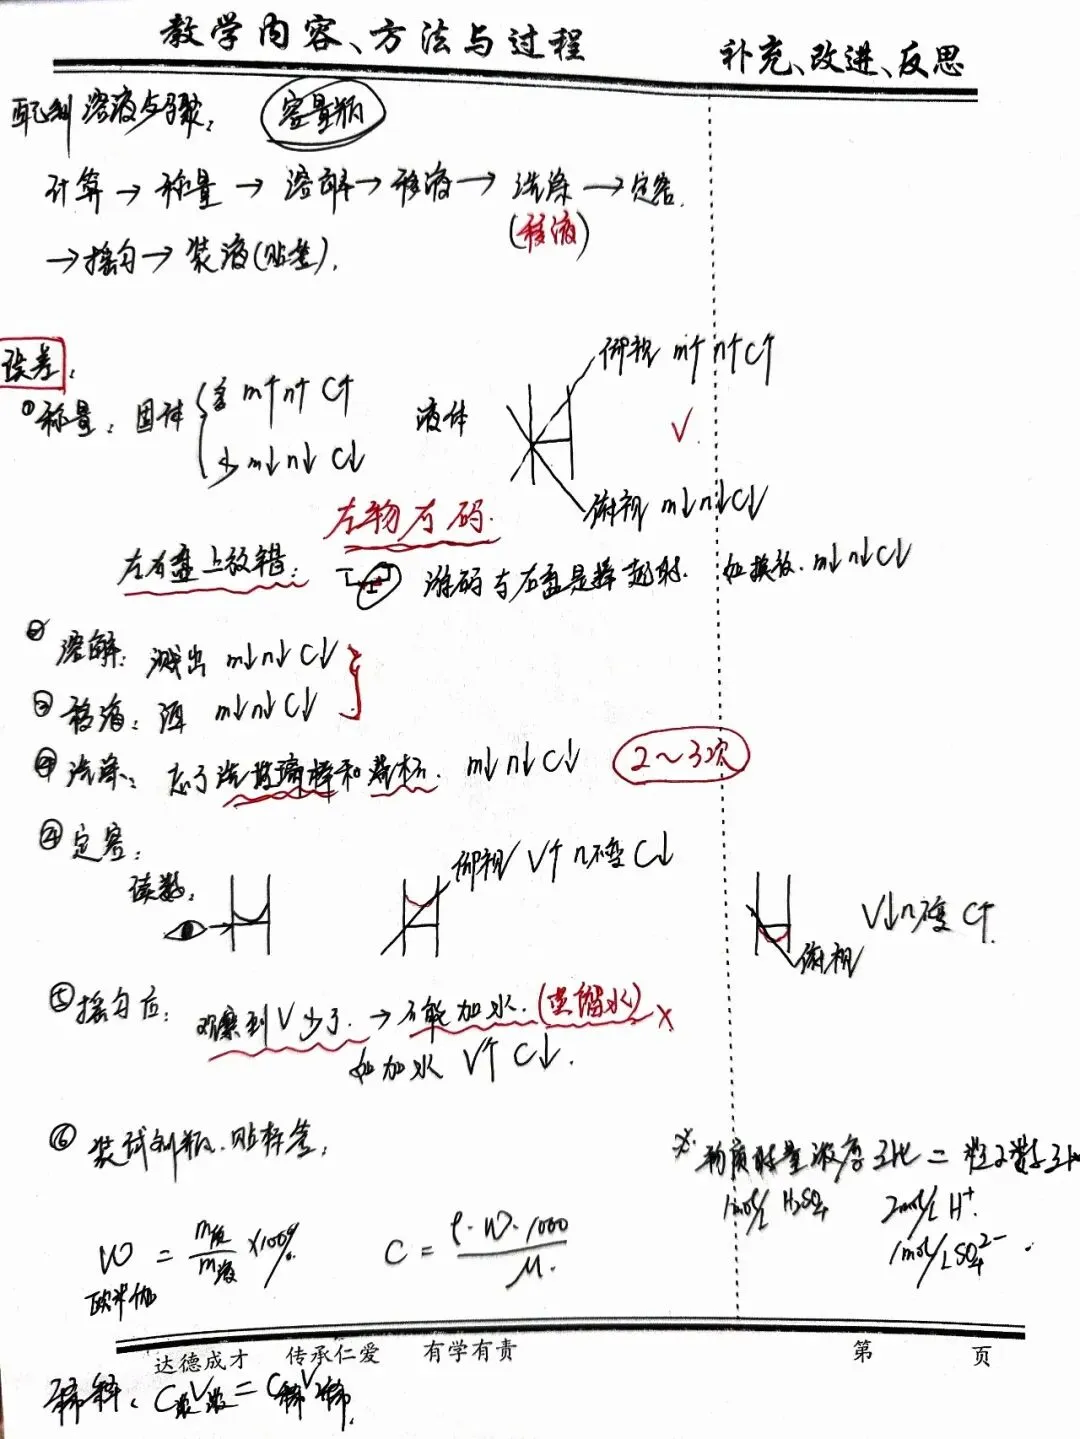 教学内容、方法与过程
补充、改进、反思
配制溶液步骤: 容量瓶
计算→称量→溶解→移液→洗涤→定容.
(移液)
→摇匀→装液(贴签).
误差:
①称量: 固体 多 m↑n↑ C↑
少 m↓n↓ C↓
液体 仰视 m↑n↑C↑
√
俯视 m↓n↓C↓
左物右码.
左右盘上放错: 游码与右盘是 如换放. m↓n↓C↓
② 溶解: 溅出 m↓n↓C↓
③ 移液: 洒 m↓n↓C↓
洗涤: 忘了洗玻璃棒和烧杯. m↓n↓C↓ 2~3次
④定容:
读数: 仰视 V↑ n不变 C↓
俯视 V↓n不变 C↑.
⑤摇匀后: 观察到V少了.→不能加水.(蒸馏水)×
如加水 V↑ C↓.
⑥ 装试剂瓶.贴标签:
物质的量浓度之比=粒子数之比
1mol/L H₂SO₄ 2mol/L H⁺.
1mol/L SO₄²⁻.
W = m质/m液 ×100%
欧米伽
C = ρ·W·1000/M.
达德成才 传承仁爱 有学有责 第 页
稀释: C浓V浓=C稀V稀.